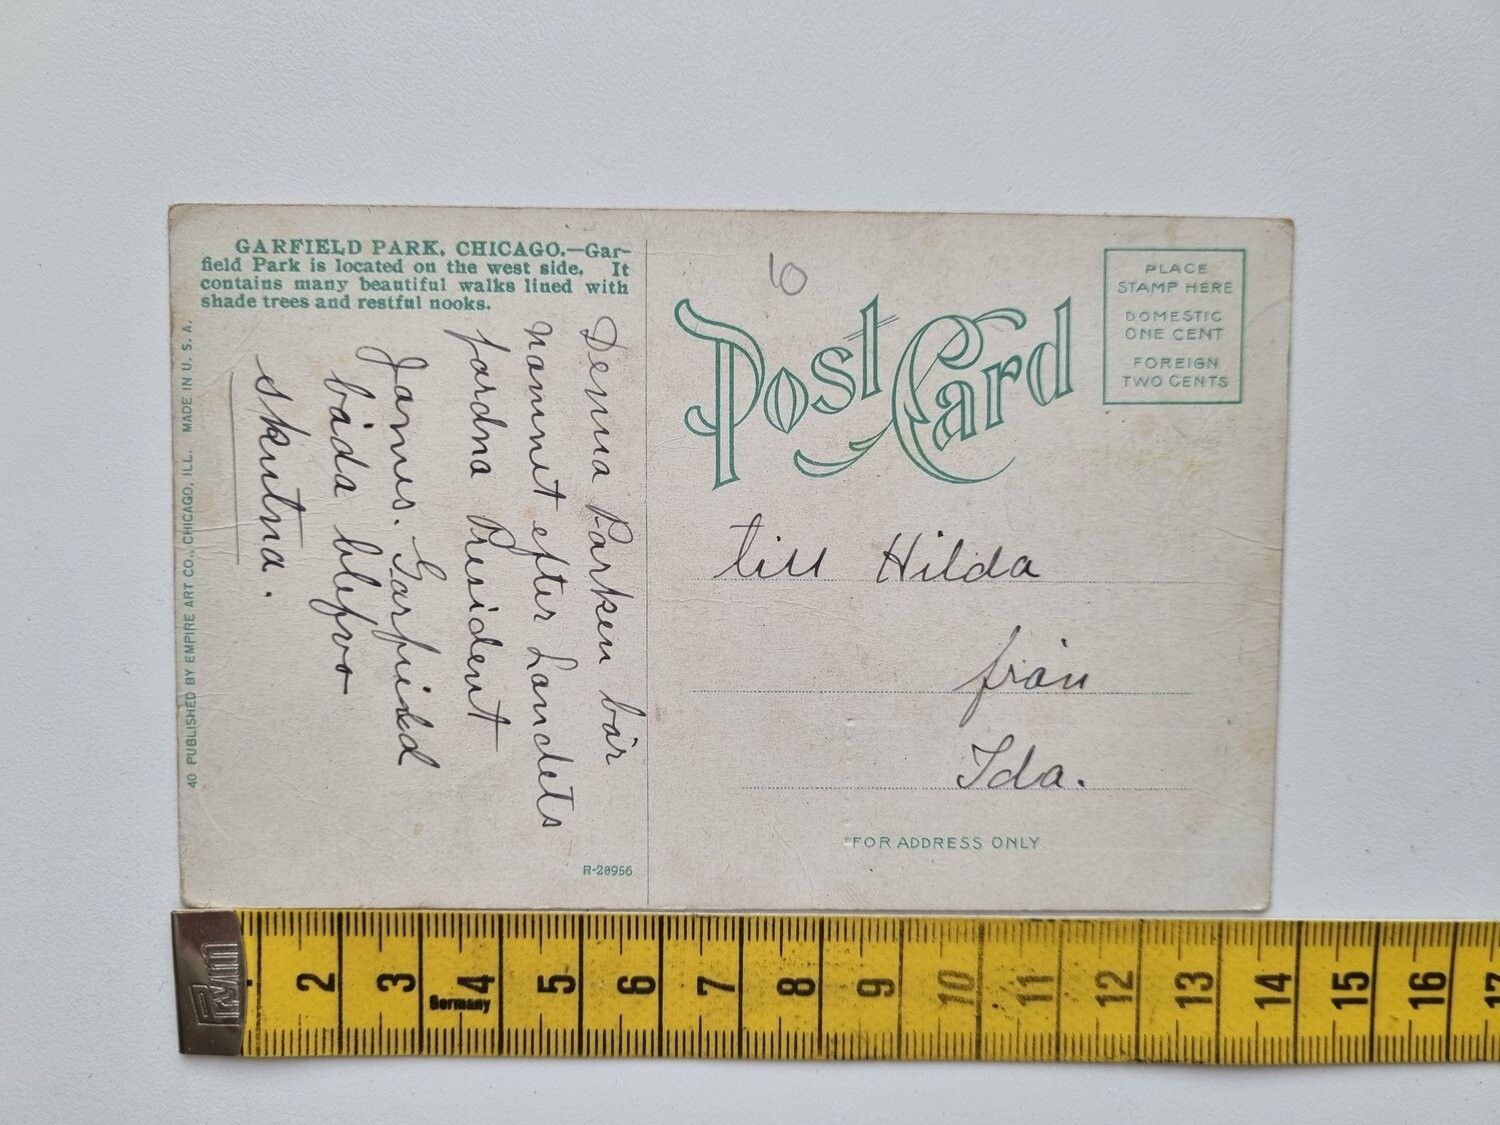 GARFIELD PARK, CHICAGO.—Gar-
field Park is located on the west side. It
contains many beautiful walks lined with
shade trees and restful nooks.
Denna Parken bär
namnet efter Landets
fordna President
James. Garfield
båda blefvo
skutna.
40 PUBLISHED BY EMPIRE ART CO., CHICAGO, ILL. MADE IN U. S. A.
R-28956
10
Post Card
PLACE
STAMP HERE
DOMESTIC
ONE CENT
FOREIGN
TWO CENTS
till Hilda
från
Ida.
FOR ADDRESS ONLY.
Prym
2 3 4 5 6 7 8 9 10 11 12 13 14 15 16 17
Germany